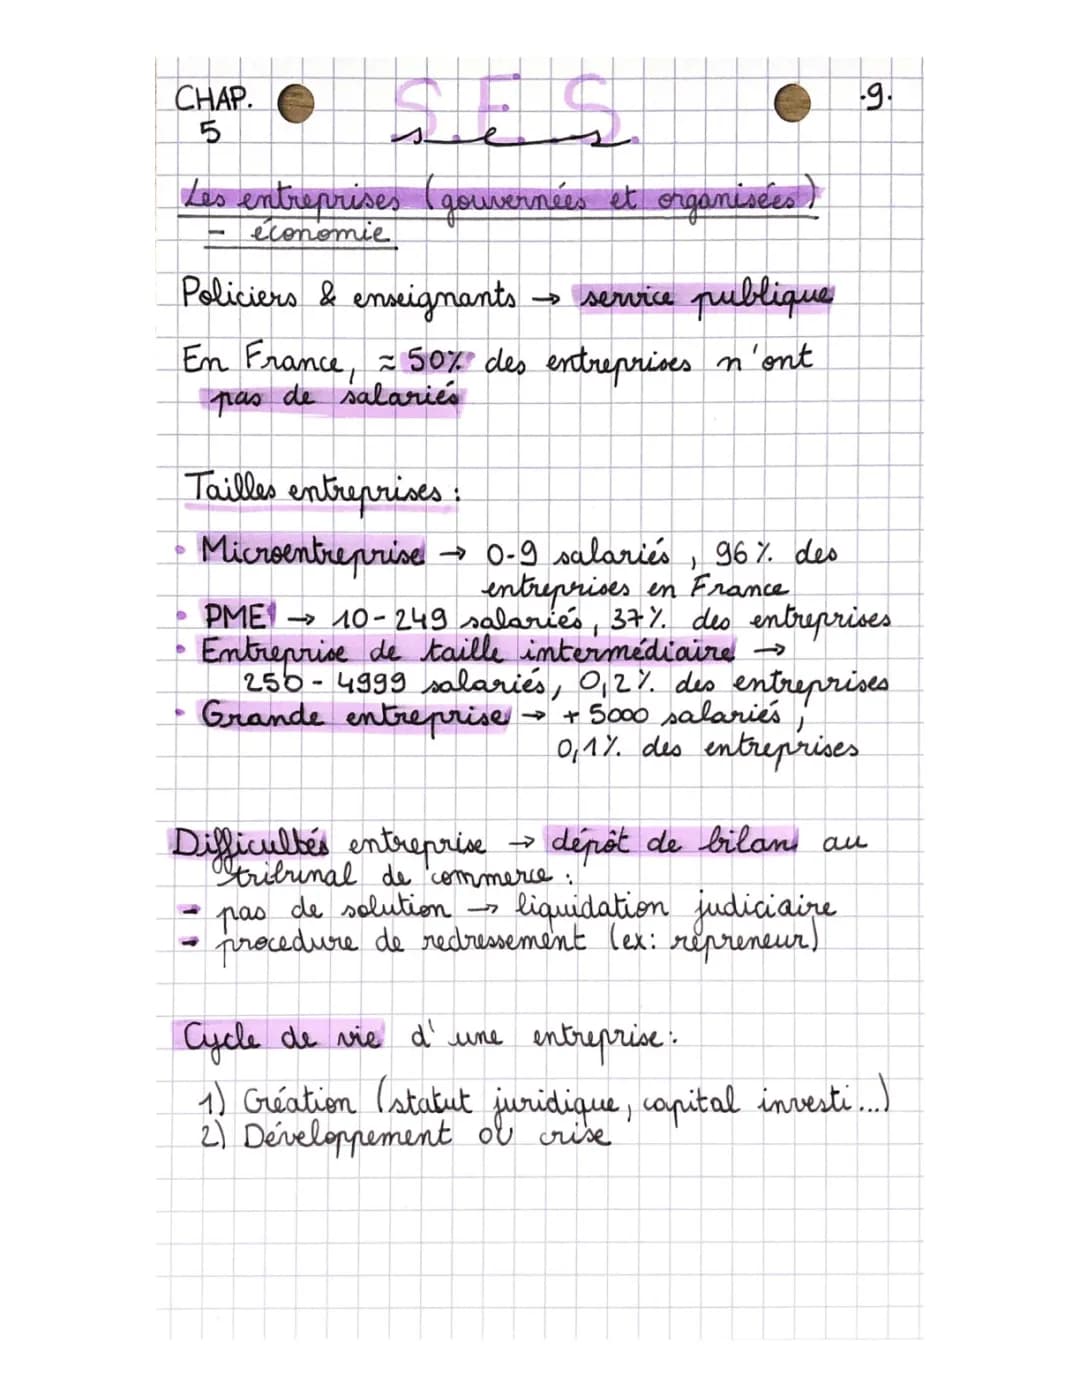 CHAP. S.E.S. .9.
5 ses
Les entreprises (gouvernées et organisées)
- économie
Policiers & enseignants → service publique
En France, ≈ 50% des entreprises n'ont
pas de salariés
Tailles entreprises :
• Microentreprise → 0-9 salariés, 96% des
entreprises en France
• PME → 10-249 salariés, 37% des entreprises
• Entreprise de taille intermédiaire →
250 - 4999 salariés, 0,2% des entreprises
• Grande entreprise → + 5000 salariés,
0,1% des entreprises
Difficultés entreprise → dépôt de bilan au
tribunal de commerce :
- pas de solution → liquidation judiciaire
- procedure de redressement (ex: répreneur)
Cycle de vie d'une entreprise :
1) Création (statut juridique, capital investi...)
2) Développement ou crise